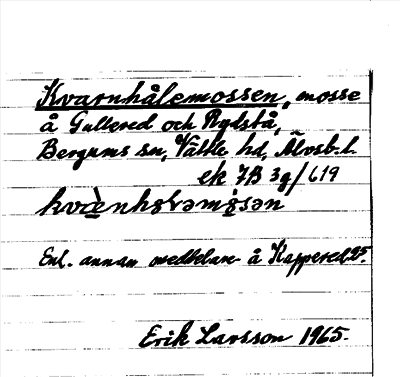 Kvarnhålemossen, mosse
å Gullered och Rydstå,
Bergums sn, Vättle hd, Älvsb. l.
ek 7B 3g/619
kvæ̀nhɷləmɷ̀sən
Enl. annan meddelare å Kappered 25.
Erik Larsson 1965.